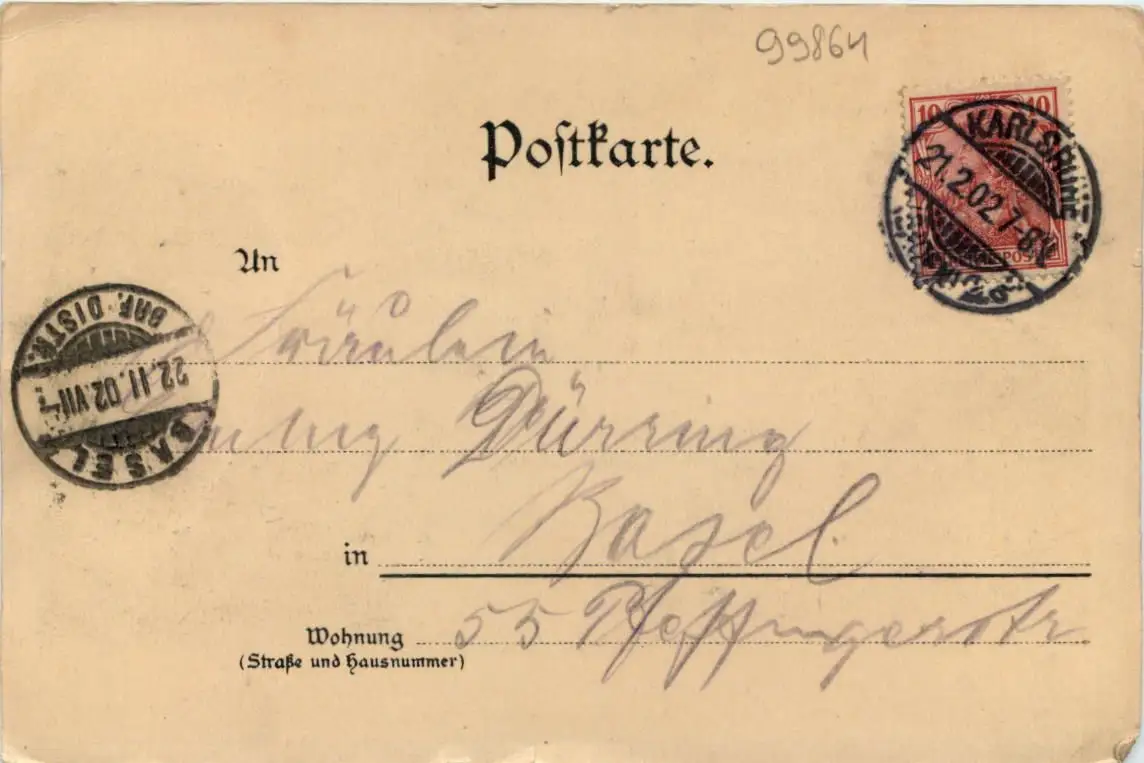 99864
Postkarte.
10 10
KARLSRUHE
21.2.02.7-8V
An
BRF. DISTR.
22.II.02.VII
BASEL
Fräulein
Dürring
in Basel
Wohnung 55 Pfeffingerstr
(Straße und Hausnummer)